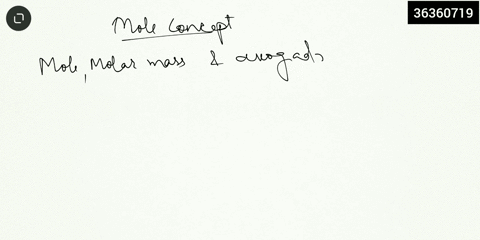 36360719
Mole Concept
Mole, Molar mass & avogad